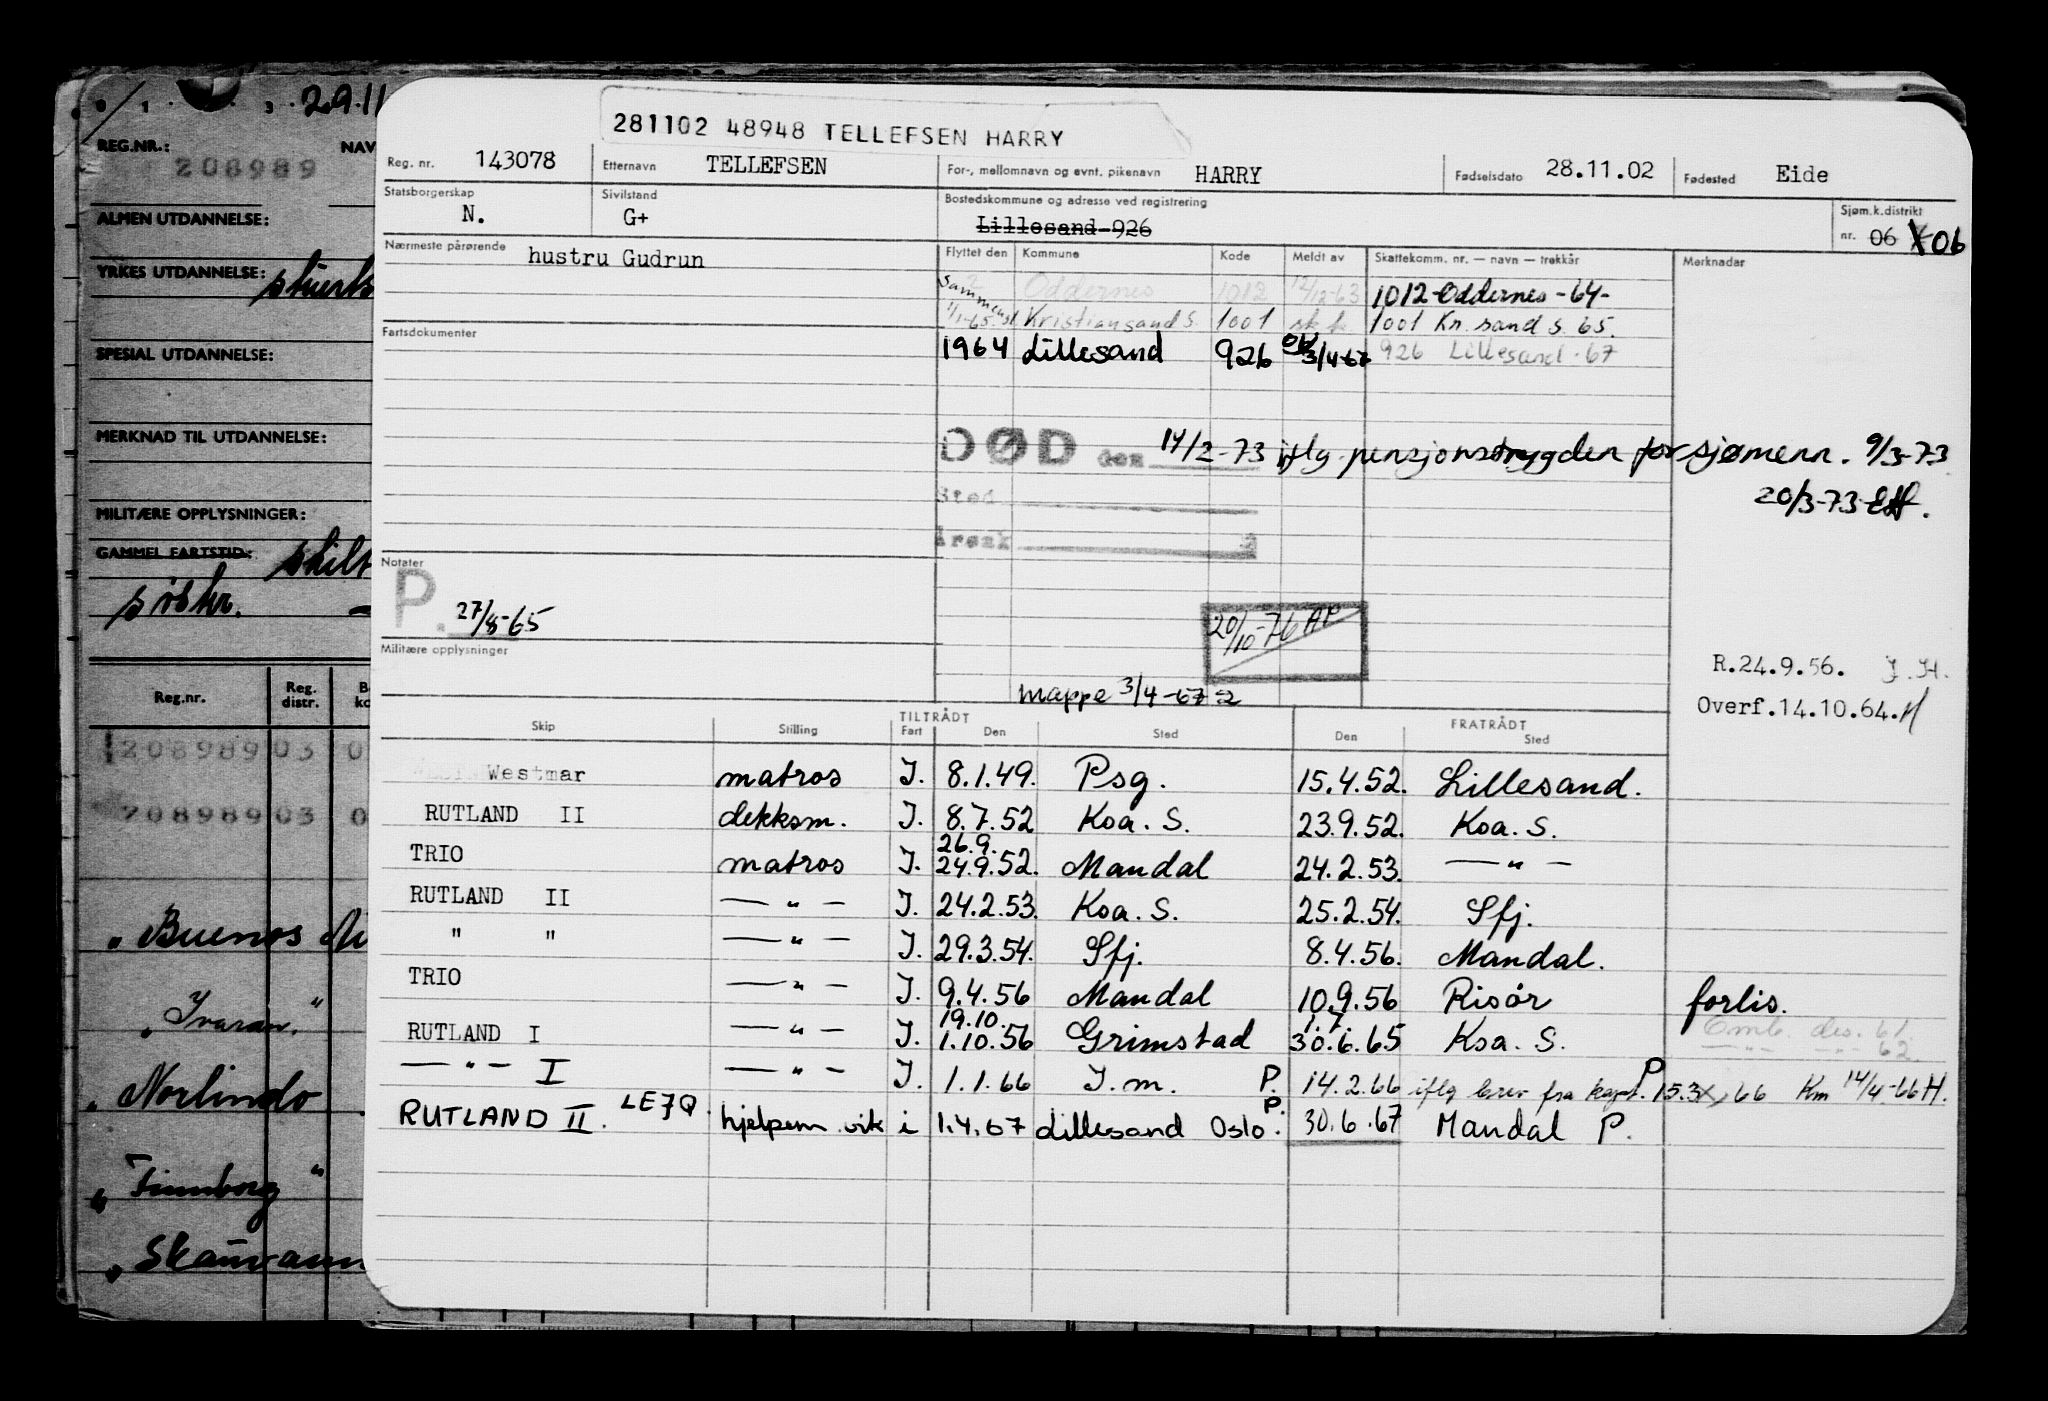 29.11
REG.NR.: NAV
208989
ALMEN UTDANNELSE:
YRKES UTDANNELSE:
SPESIAL UTDANNELSE:
MERKNAD TIL UTDANNELSE:
MILITÆRE OPPLYSNINGER:
GAMMEL FARTSTID:
Reg.nr. Reg. distr.
208989 03 0
208989 03 0
„ Buenos Ai
„ Ivaran. "
„ Norlindo
„ Finnborg "
„ Skauvann
281102 48948 TELLEFSEN HARRY
Reg. nr. 143078 Etternavn TELLEFSEN For-, mellomnavn og evnt. pikenavn HARRY Fødselsdato 28.11.02 Fødested Eide
Statsborgerskap N. Sivilstand G+ Bostedskommune og adresse ved registrering Lillesand-926 Sjøm.k.distrikt nr. 06 06
Nærmeste pårørende hustru Gudrun
Flyttet den Kommune Kode Meldt av Skattekomm. nr. — navn — trekkår Merknader
Oddernes 1012 12/12-63 1012-Oddernes-64-
Sammensl 1/1-65. Kristiansand S. 1001 1001 Kr. sand S. 65.
1964 Lillesand 926 3/4-67 926 Lillesand-67
Fartsdokumenter
DØD den 14/2-73 iflg. pensjonstrygden for sjømenn. 9/3-73
20/3-73
Sted
Årsak
Notater
P. 27/8-65
20/10-76 AP
Militære opplysninger
R.24.9.56. J.H.
mappe 3/4-67
Overf.14.10.64. H
Skip Stilling TILTRÅDT Fart Den Sted FRATRÅDT Den Sted
Westmar matros J. 8.1.49. Psg. 15.4.52. Lillesand.
RUTLAND II dekksm. J. 8.7.52 Koa. S. 23.9.52. Koa. S.
TRIO matros J. 26.9. 24.9.52. Mandal 24.2.53. — " —
RUTLAND II — " — J. 24.2.53. Koa. S. 25.2.54. Sfj.
" " — " — J. 29.3.54. Sfj. 8.4.56. Mandal.
TRIO — " — J. 9.4.56 Mandal 10.9.56 Risör forlis.
RUTLAND I — " — J. 19.10. 1.10.56 Grimstad 1.7. 30.6.65 Koa. S. Omb. des. 61.
— " — — " — 62.
— " — I — " — J. 1.1.66 J.m. P. 14.2.66 iflg brev fra kapt. P 15.3, 66 Km 14/4-66 H.
RUTLAND II. LEJQ. hjelpem. vik i 1.4.67 Lillesand Oslo. P. 30.6.67 Mandal P.